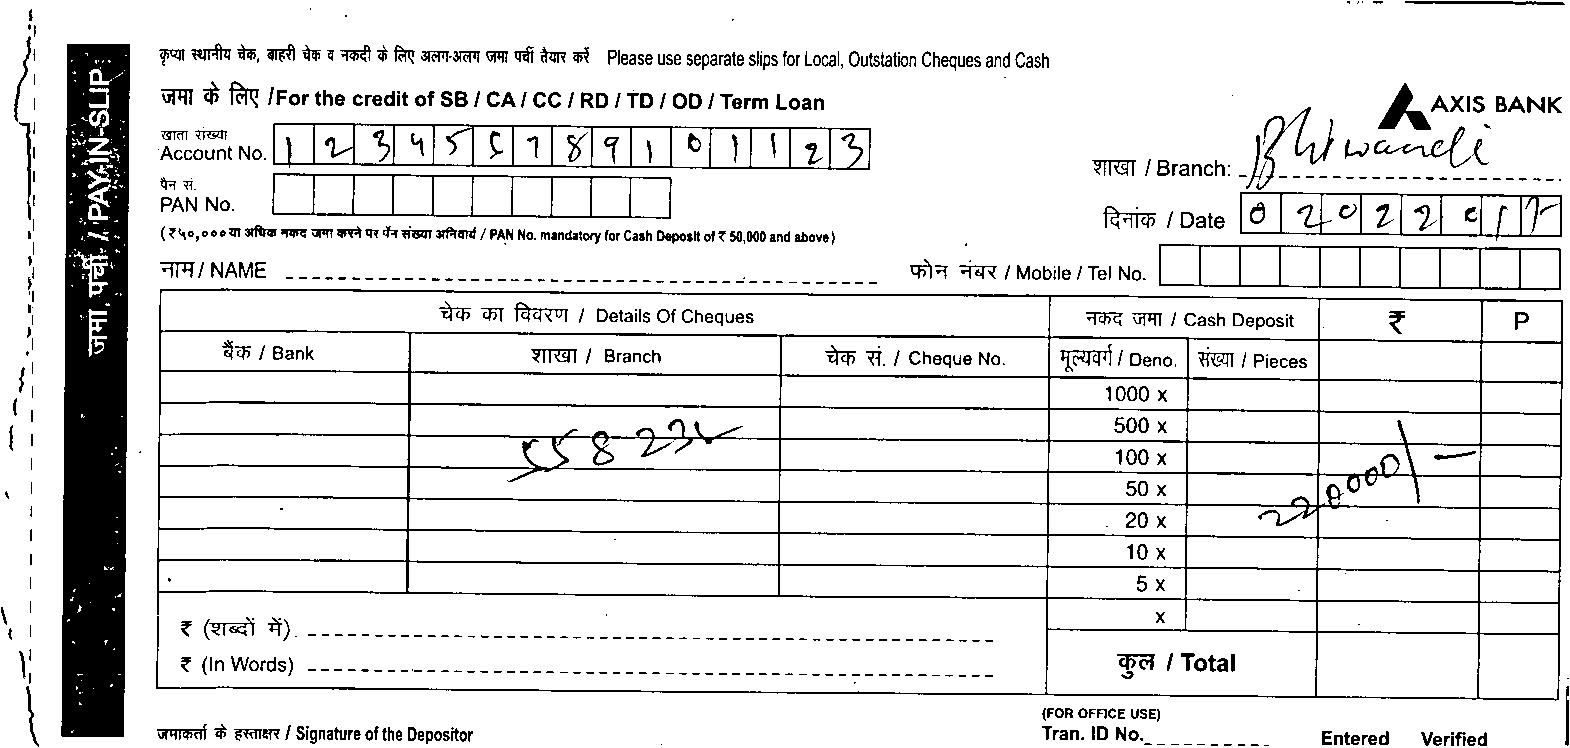 जमा पर्ची / PAY-IN-SLIP
कृप्या स्थानीय चेक, बाहरी चेक व नकदी के लिए अलग-अलग जमा पर्ची तैयार करें Please use separate slips for Local, Outstation Cheques and Cash
जमा के लिए /For the credit of SB / CA / CC / RD / TD / OD / Term Loan
AXIS BANK
खाता संख्या
Account No. 1 2 3 4 5 5 7 8 9 1 0 1 1 2 3
शाखा / Branch: Bhiwandi
पैन सं.
PAN No.
दिनांक / Date 0 2 0 2 2 0 1 5
(₹५०,००० या अधिक नकद जमा करने पर पॅन संख्या अनिवार्य / PAN No. mandatory for Cash Deposit of ₹ 50,000 and above)
नाम / NAME
फोन नंबर / Mobile / Tel No.
चेक का विवरण / Details Of Cheques नकद जमा / Cash Deposit ₹ P
बैंक / Bank शाखा / Branch चेक सं. / Cheque No. मूल्यवर्ग / Deno. संख्या / Pieces
1000 x
500 x
558232
100 x
220000/-
50 x
20 x
10 x
5 x
x
₹ (शब्दों में)
₹ (In Words)
कुल / Total
जमाकर्ता के हस्ताक्षर / Signature of the Depositor
(FOR OFFICE USE)
Tran. ID No.
Entered Verified